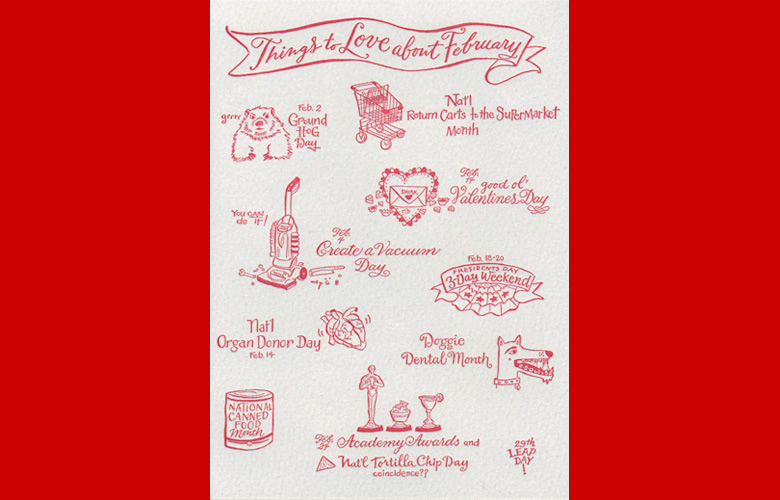 Things to Love about February
grrr
Feb. 2
Ground
Hog
Day
Nat'l
Return Carts to the Supermarket
Month
You can
do it!
Feb.
4
Create a Vacuum
Day
Feb.
14
good ol'
Valentines Day
Feb. 18-20
PRESIDENTS DAY
3-Day Weekend
Nat'l
Organ Donor Day
Feb. 14
Doggie
Dental Month
NATIONAL
CANNED
FOOD
Month
Feb.
24
Academy Awards and
Nat'l Tortilla Chip Day
coincidence??
29th
LEAP
DAY
!